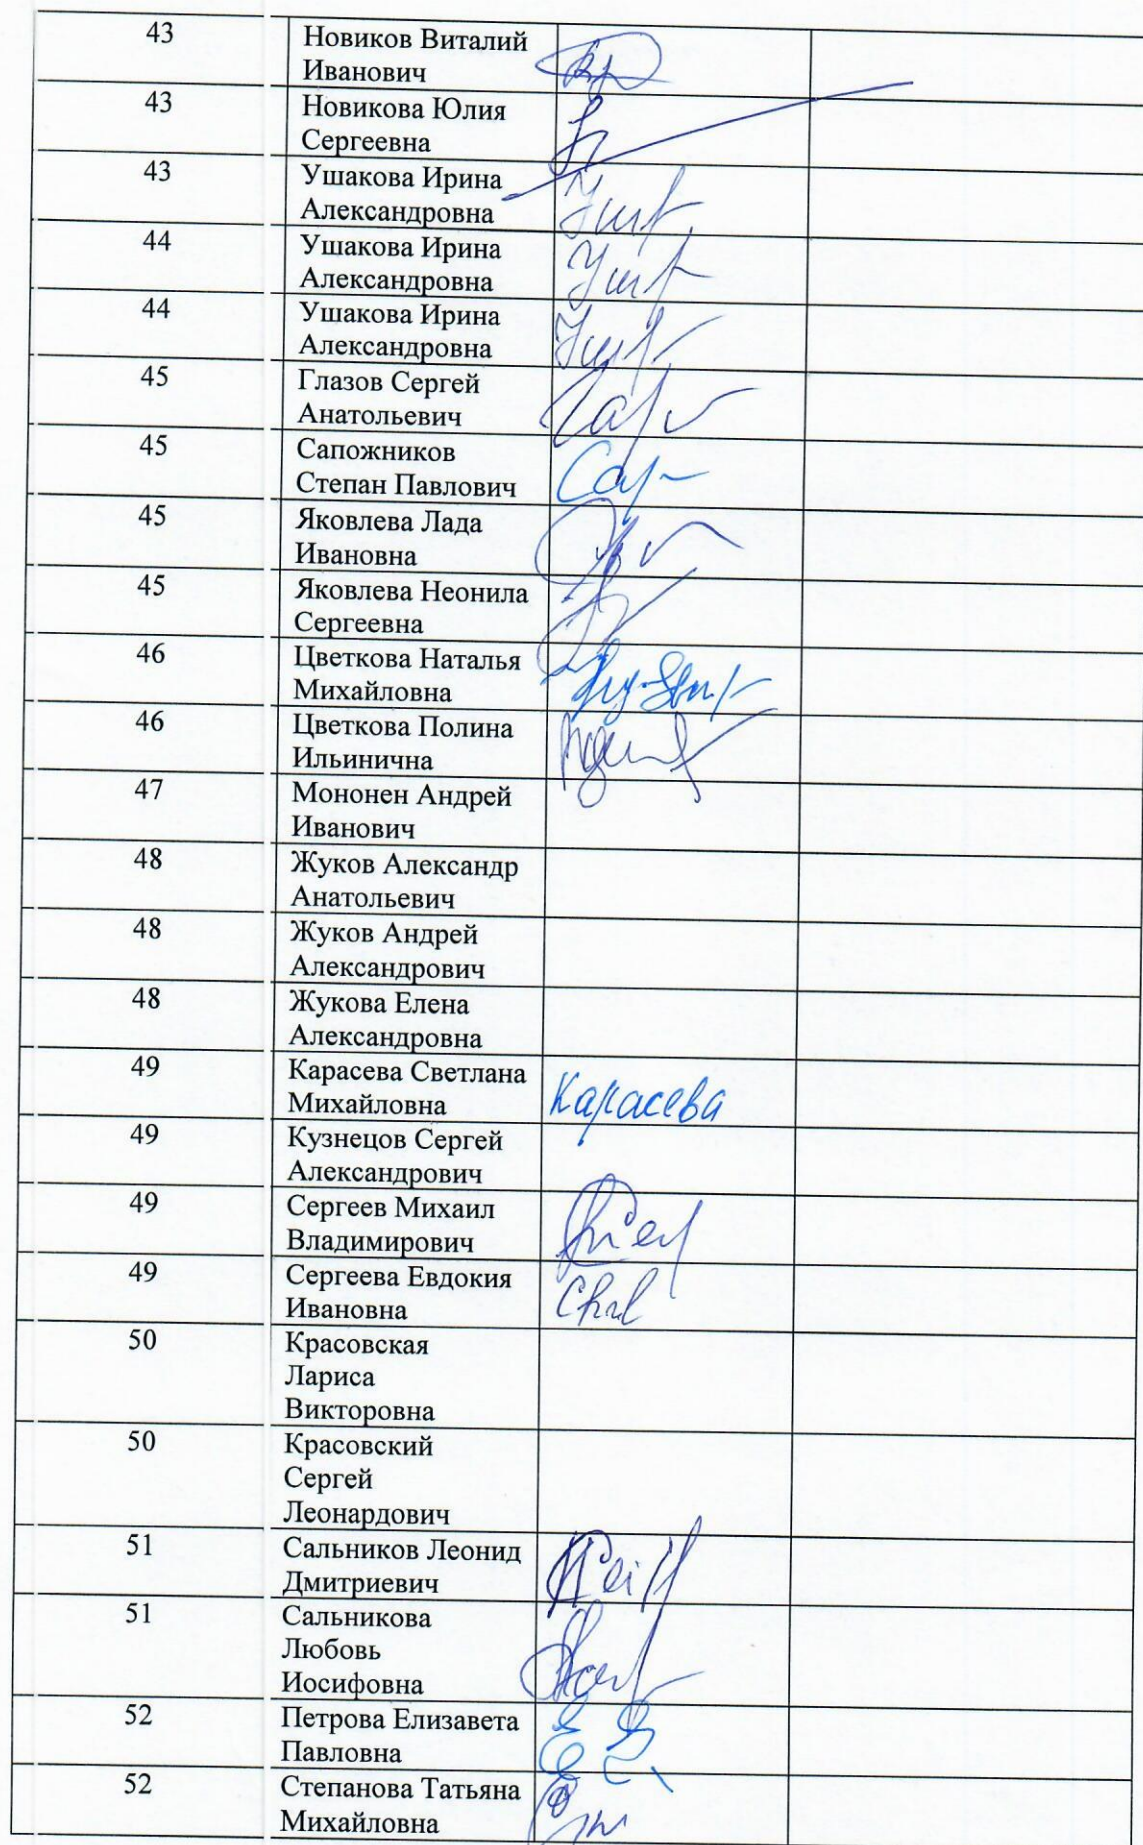 43 Новиков Виталий
Иванович
43 Новикова Юлия
Сергеевна
43 Ушакова Ирина
Александровна
44 Ушакова Ирина
Александровна
44 Ушакова Ирина
Александровна
45 Глазов Сергей
Анатольевич
45 Сапожников
Степан Павлович
45 Яковлева Лада
Ивановна
45 Яковлева Неонила
Сергеевна
46 Цветкова Наталья
Михайловна
46 Цветкова Полина
Ильинична
47 Мононен Андрей
Иванович
48 Жуков Александр
Анатольевич
48 Жуков Андрей
Александрович
48 Жукова Елена
Александровна
49 Карасева Светлана
Михайловна Карасева
49 Кузнецов Сергей
Александрович
49 Сергеев Михаил
Владимирович
49 Сергеева Евдокия
Ивановна
50 Красовская
Лариса
Викторовна
50 Красовский
Сергей
Леонардович
51 Сальников Леонид
Дмитриевич
51 Сальникова
Любовь
Иосифовна
52 Петрова Елизавета
Павловна
52 Степанова Татьяна
Михайловна